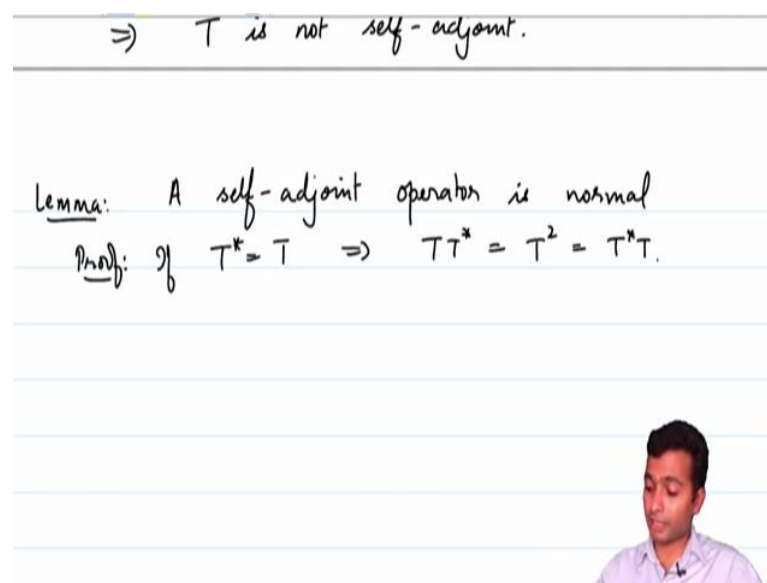 ⇒ T is not self-adjoint.
Lemma: A self-adjoint operator is normal
Proof: If T* = T ⇒ TT* = T² = T*T.